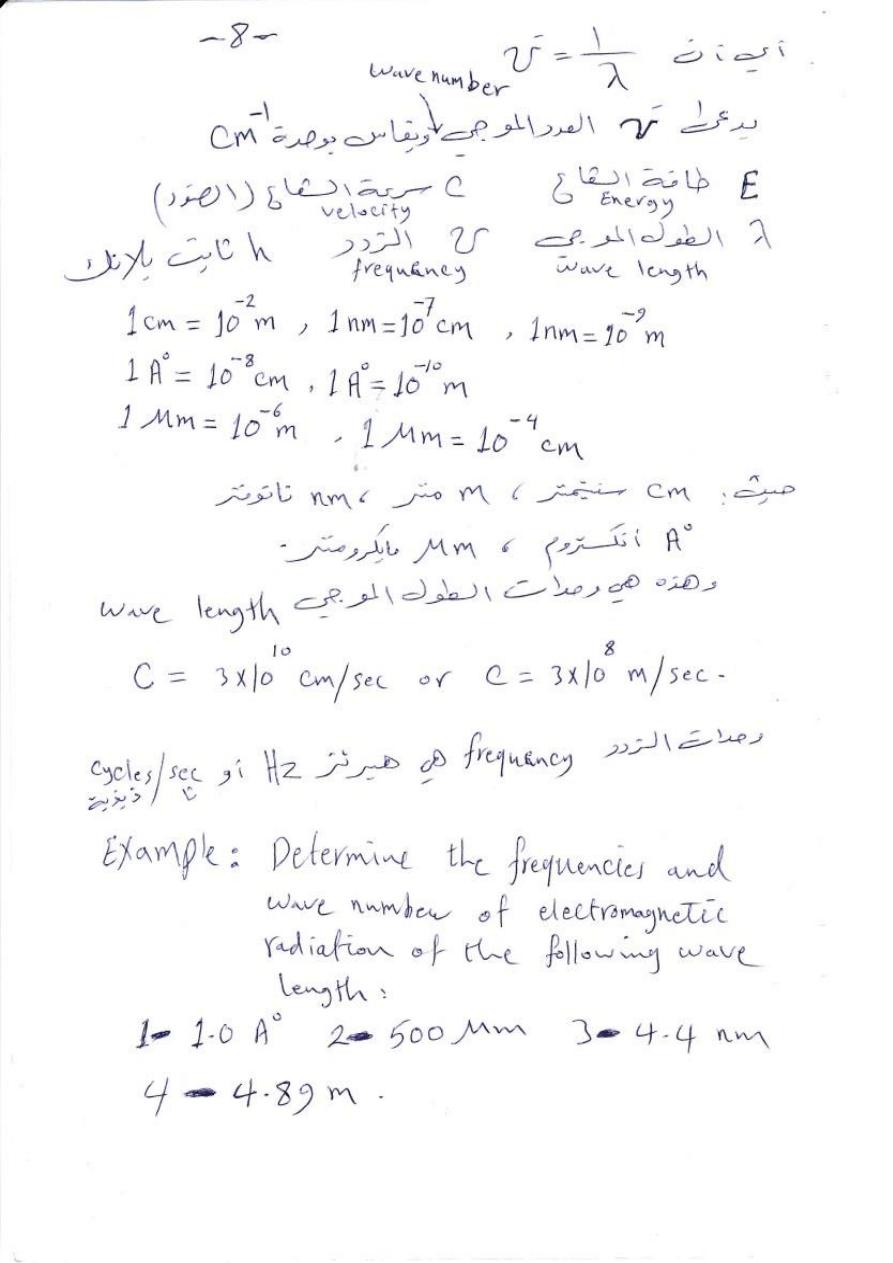 -8-
أي أن ν̄ = 1/λ
wave number
يدعى ν̄ العدد الموجي ويقاس بوحدة cm⁻¹
E طاقة الشعاع C سرعة الشعاع (الضوء)
Energy velocity
λ الطول الموجي ν التردد h ثابت بلانك
wave length frequency
1 cm = 10⁻² m , 1 nm = 10⁻⁷ cm , 1 nm = 10⁻⁹ m
1 A° = 10⁻⁸ cm , 1 A° = 10⁻¹⁰ m
1 Mm = 10⁻⁶ m , 1 Mm = 10⁻⁴ cm
حيث: cm سنتمتر ، m متر ، nm نانومتر
A° أنكستروم ، Mm مايكرومتر -
وهذه هي وحدات الطول الموجي wave length
C = 3x10¹⁰ cm/sec or C = 3x10⁸ m/sec -
وحدات التردد frequency هي هيرتز Hz أو cycles/sec
ذبذبة/ثا
Example: Determine the frequencies and
wave number of electromagnetic
radiation of the following wave
length:
1- 1.0 A° 2- 500 Mm 3- 4.4 nm
4 - 4.89 m .